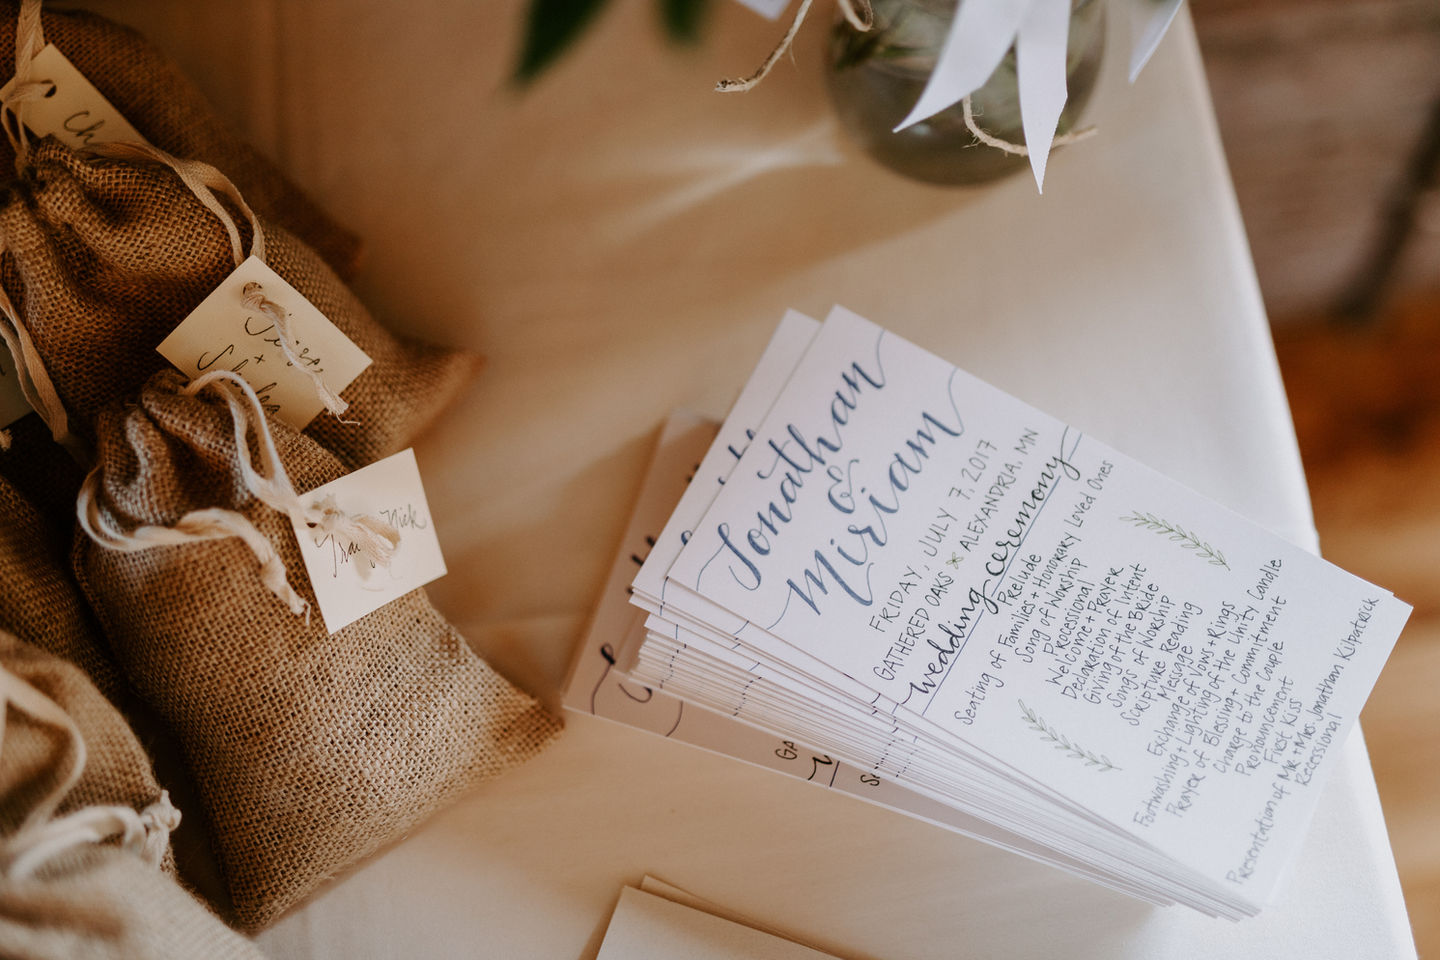 Ch
+
Nick
Jonathan
&
Miriam
FRIDAY, JULY 7, 2017
GATHERED OAKS ALEXANDRIA, MN
wedding ceremony
Prelude
Seating of Families + Honorary Loved Ones
Song of Worship
Processional
Welcome + Prayer
Declaration of Intent
Giving of the Bride
Songs of Worship
Scripture Reading
Message
Exchange of Vows + Rings
Footwashing + Lighting of the Unity Candle
Prayer of Blessing + Commitment
Charge to the Couple
Pronouncement
First Kiss
Presentation of Mr. + Mrs. Jonathan Kilpatrick
Recessional
GA